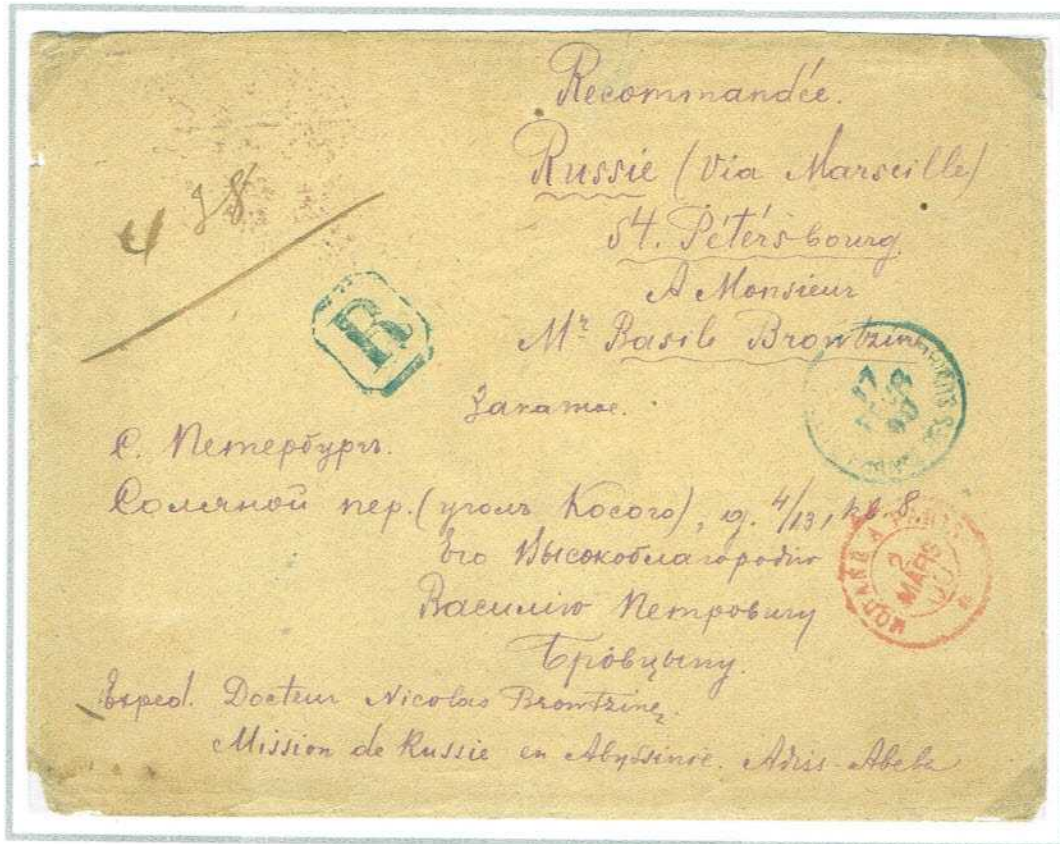 Recommandée.
Russie (Via Marseille)
St. Pétérsbourg
A Monsieur
Mr Basile Browtzine
4 38
R
Заказное.
С. Петербургъ.
Соляной пер. (уголъ Косого), д. 4/13, кв. 8.
Его Высокоблагородію
Василію Петровичу
Бровцыну.
17
2
MARS
MODANE A PARIS
Exped. Docteur Nicolas Browtzine,
Mission de Russie en Abyssinie. Adis-Abeba